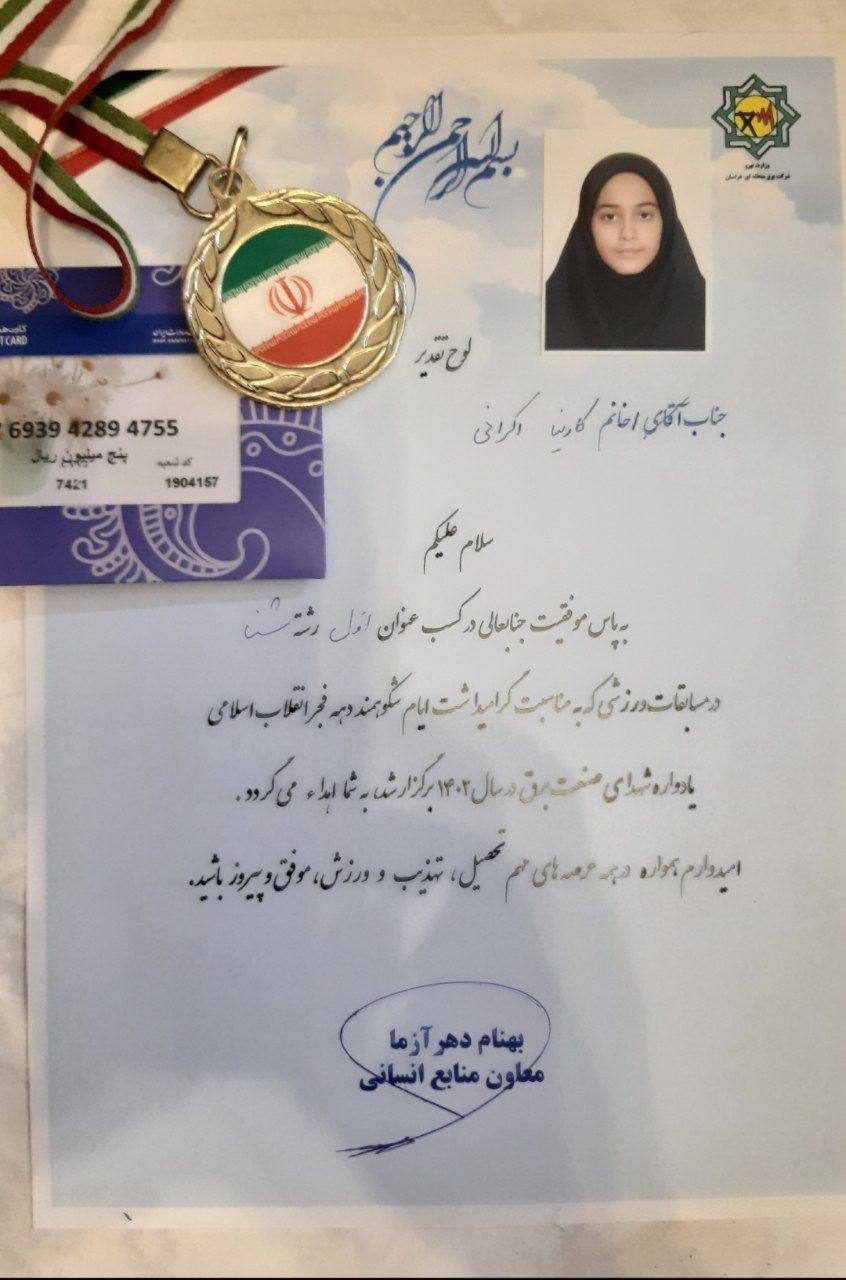 بسم الله الرحمن الرحیم
وزارت نیرو
شرکت برق منطقه ای خراسان
لوح تقدیر
جناب آقای/خانم اکرانی
سلام علیکم
به پاس موفقیت جنابعالی در کسب عنوان اول رشته شنا
در مسابقات ورزشی که به مناسبت گرامیداشت ایام شکوهمند دهه فجر انقلاب اسلامی
یادواره شهدای صنعت برق در سال ۱۴۰۲ برگزار شد، به شما اهداء می گردد.
امیدوارم همواره در همه عرصه های مهم تحصیل، تهذیب و ورزش، موفق و پیروز باشید.
بهنام دهر آزما
معاون منابع انسانی
T CARD
6939 4289 4755
پنج میلیون ریال
کد شعبه
7421
1904157